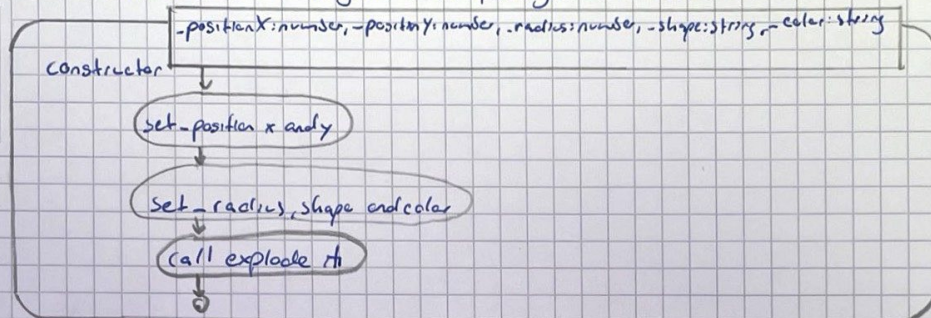 _positionX:number, _positionY:number, _radius:number, _shape:string, _color:string
constructor
set_position x and y
set_radius, shape and color
call explode